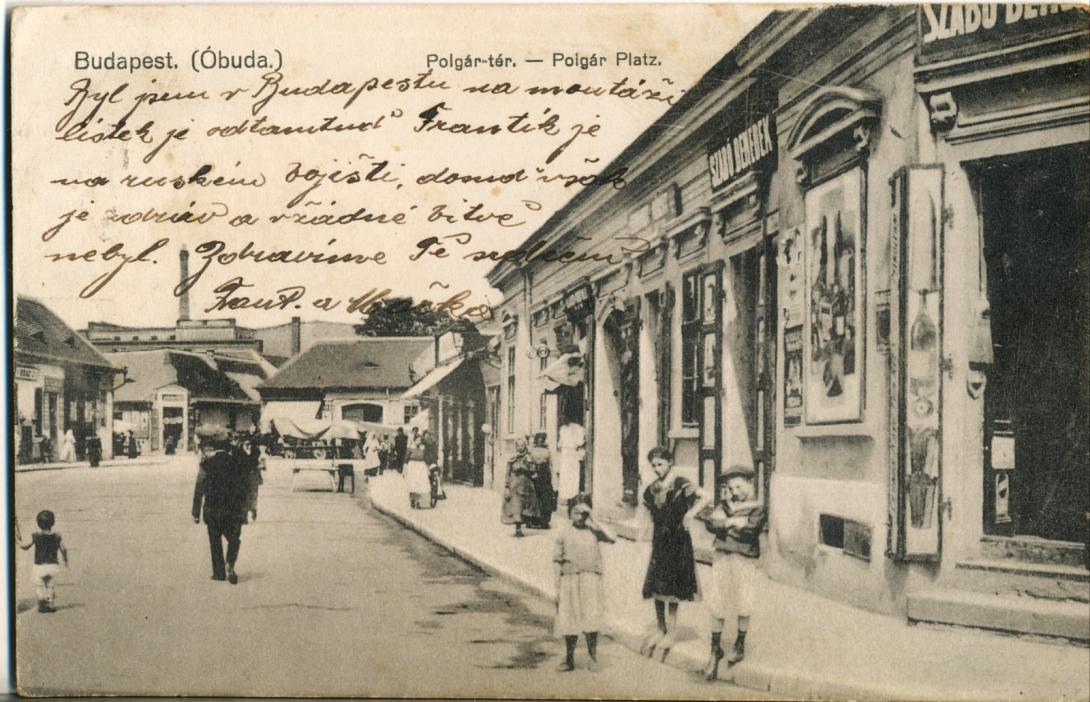 Budapest. (Óbuda.)
Polgár-tér. — Polgár Platz.
Byl jsem v Budapestu na montáži
lístek je odtamtud Frantík je
na ruském bojišti, dosud však
je zdráv a v žádné bitvě
nebyl. Zdravíme Tě srdečně
Frant. a
SZABÓ BENEDEK
SZABÓ